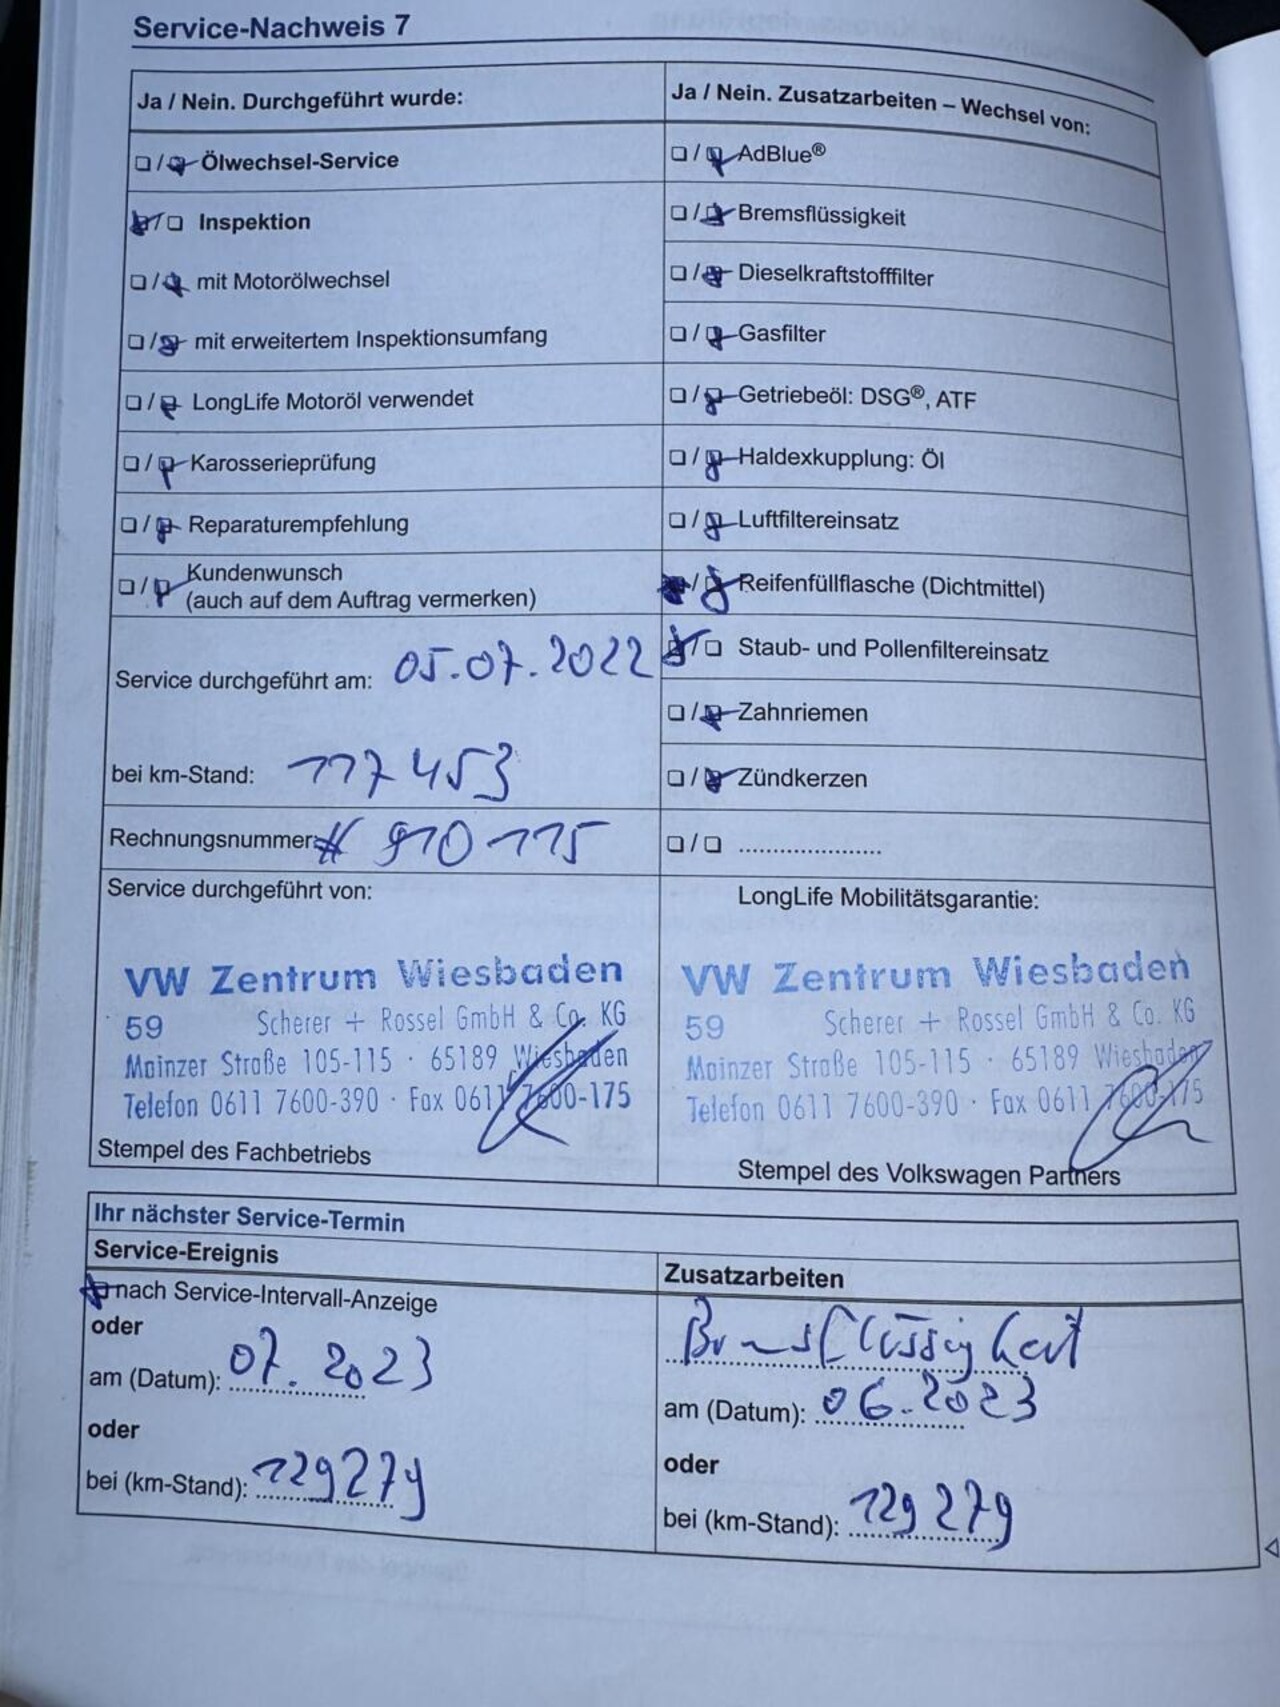 Service-Nachweis 7
Ja / Nein. Durchgeführt wurde:
☐ / ☒ Ölwechsel-Service
☒ / ☐ Inspektion
☐ / ☒ mit Motorölwechsel
☐ / ☒ mit erweitertem Inspektionsumfang
☐ / ☒ LongLife Motoröl verwendet
☐ / ☒ Karosserieprüfung
☐ / ☒ Reparaturempfehlung
☐ / ☒ Kundenwunsch
(auch auf dem Auftrag vermerken)
Service durchgeführt am: 05.07.2022
bei km-Stand: 117 453
Rechnungsnummer: # 910 115
Service durchgeführt von:
VW Zentrum Wiesbaden
59 Scherer + Rossel GmbH & Co. KG
Mainzer Straße 105-115 · 65189 Wiesbaden
Telefon 0611 7600-390 · Fax 0611 7600-175
Stempel des Fachbetriebs
Ja / Nein. Zusatzarbeiten – Wechsel von:
☐ / ☒ AdBlue®
☐ / ☒ Bremsflüssigkeit
☐ / ☒ Dieselkraftstofffilter
☐ / ☒ Gasfilter
☐ / ☒ Getriebeöl: DSG®, ATF
☐ / ☒ Haldexkupplung: Öl
☐ / ☒ Luftfiltereinsatz
■ / ☒ Reifenfüllflasche (Dichtmittel)
☒ / ☐ Staub- und Pollenfiltereinsatz
☐ / ☒ Zahnriemen
☐ / ☒ Zündkerzen
☐ / ☐ ......................
LongLife Mobilitätsgarantie:
VW Zentrum Wiesbaden
59 Scherer + Rossel GmbH & Co. KG
Mainzer Straße 105-115 · 65189 Wiesbaden
Telefon 0611 7600-390 · Fax 0611 7600-175
Stempel des Volkswagen Partners
Ihr nächster Service-Termin
Service-Ereignis
☒ nach Service-Intervall-Anzeige
oder
am (Datum): 07.2023
oder
bei (km-Stand): 129279
Zusatzarbeiten
Bremsflüssigkeit
am (Datum): 06.2023
oder
bei (km-Stand): 129 279